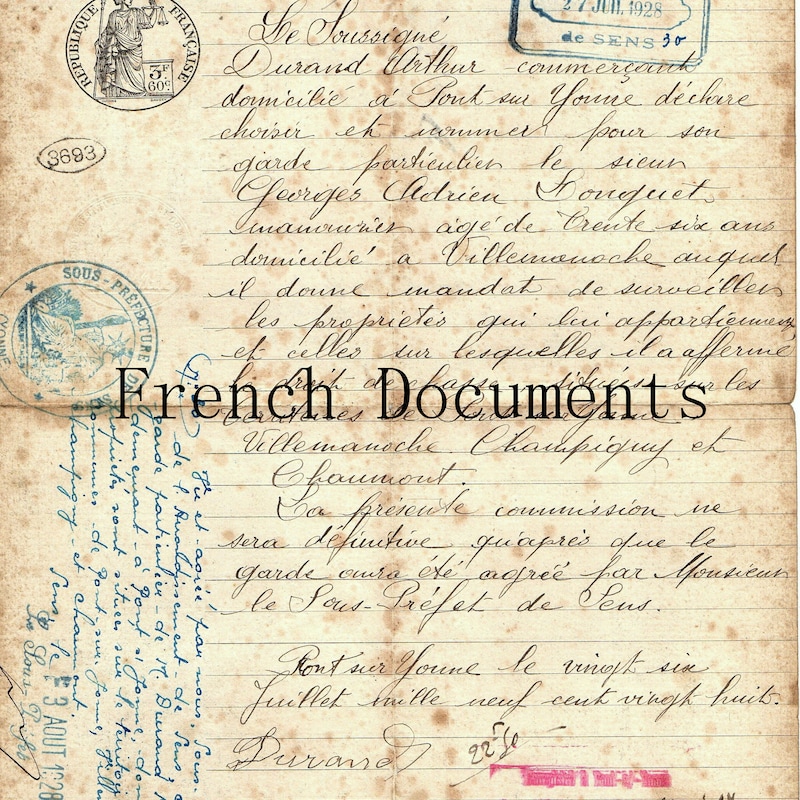 RÉPUBLIQUE FRANÇAISE
3F
60c
27 JUIL 1928
de SENS 30
3693
SOUS-PRÉFECTURE DE
YONNE
Le Soussigné
Durand Arthur commerçant
domicilié à Pont sur Yonne déclare
choisir et nommer pour son
garde particulier le sieur
Georges Adrien Longuet
manouvrier agé de trente six ans
domicilié a Villemanoche auquel
il donne mandat de surveiller
les propriétés qui lui appartiennent
et celles sur lesquelles il a affermé
le droit de chasse situées sur les
French Documents
territoires de Pont sur Yonne
Villemanoche. Champigny et
Chaumont.
La présente commission ne
sera définitive qu'après que le
garde aura été agréé par Monsieur
le Sous-Préfet de Sens.
Pont sur Yonne le vingt six
Juillet mille neuf cent vingt huit.
Durand
Vu et agréé par nous, Sous-
de l'Arrondissement de Sens
garde particulier de M. Durand
demeurant à Pont s/ Yonne, dont
propriétés sont situées sur le territoire
communes de Pont sur Yonne, Ville
Champigny et Chaumont.
Sens le
3 AOUT 1928
Le Sous-Préfet